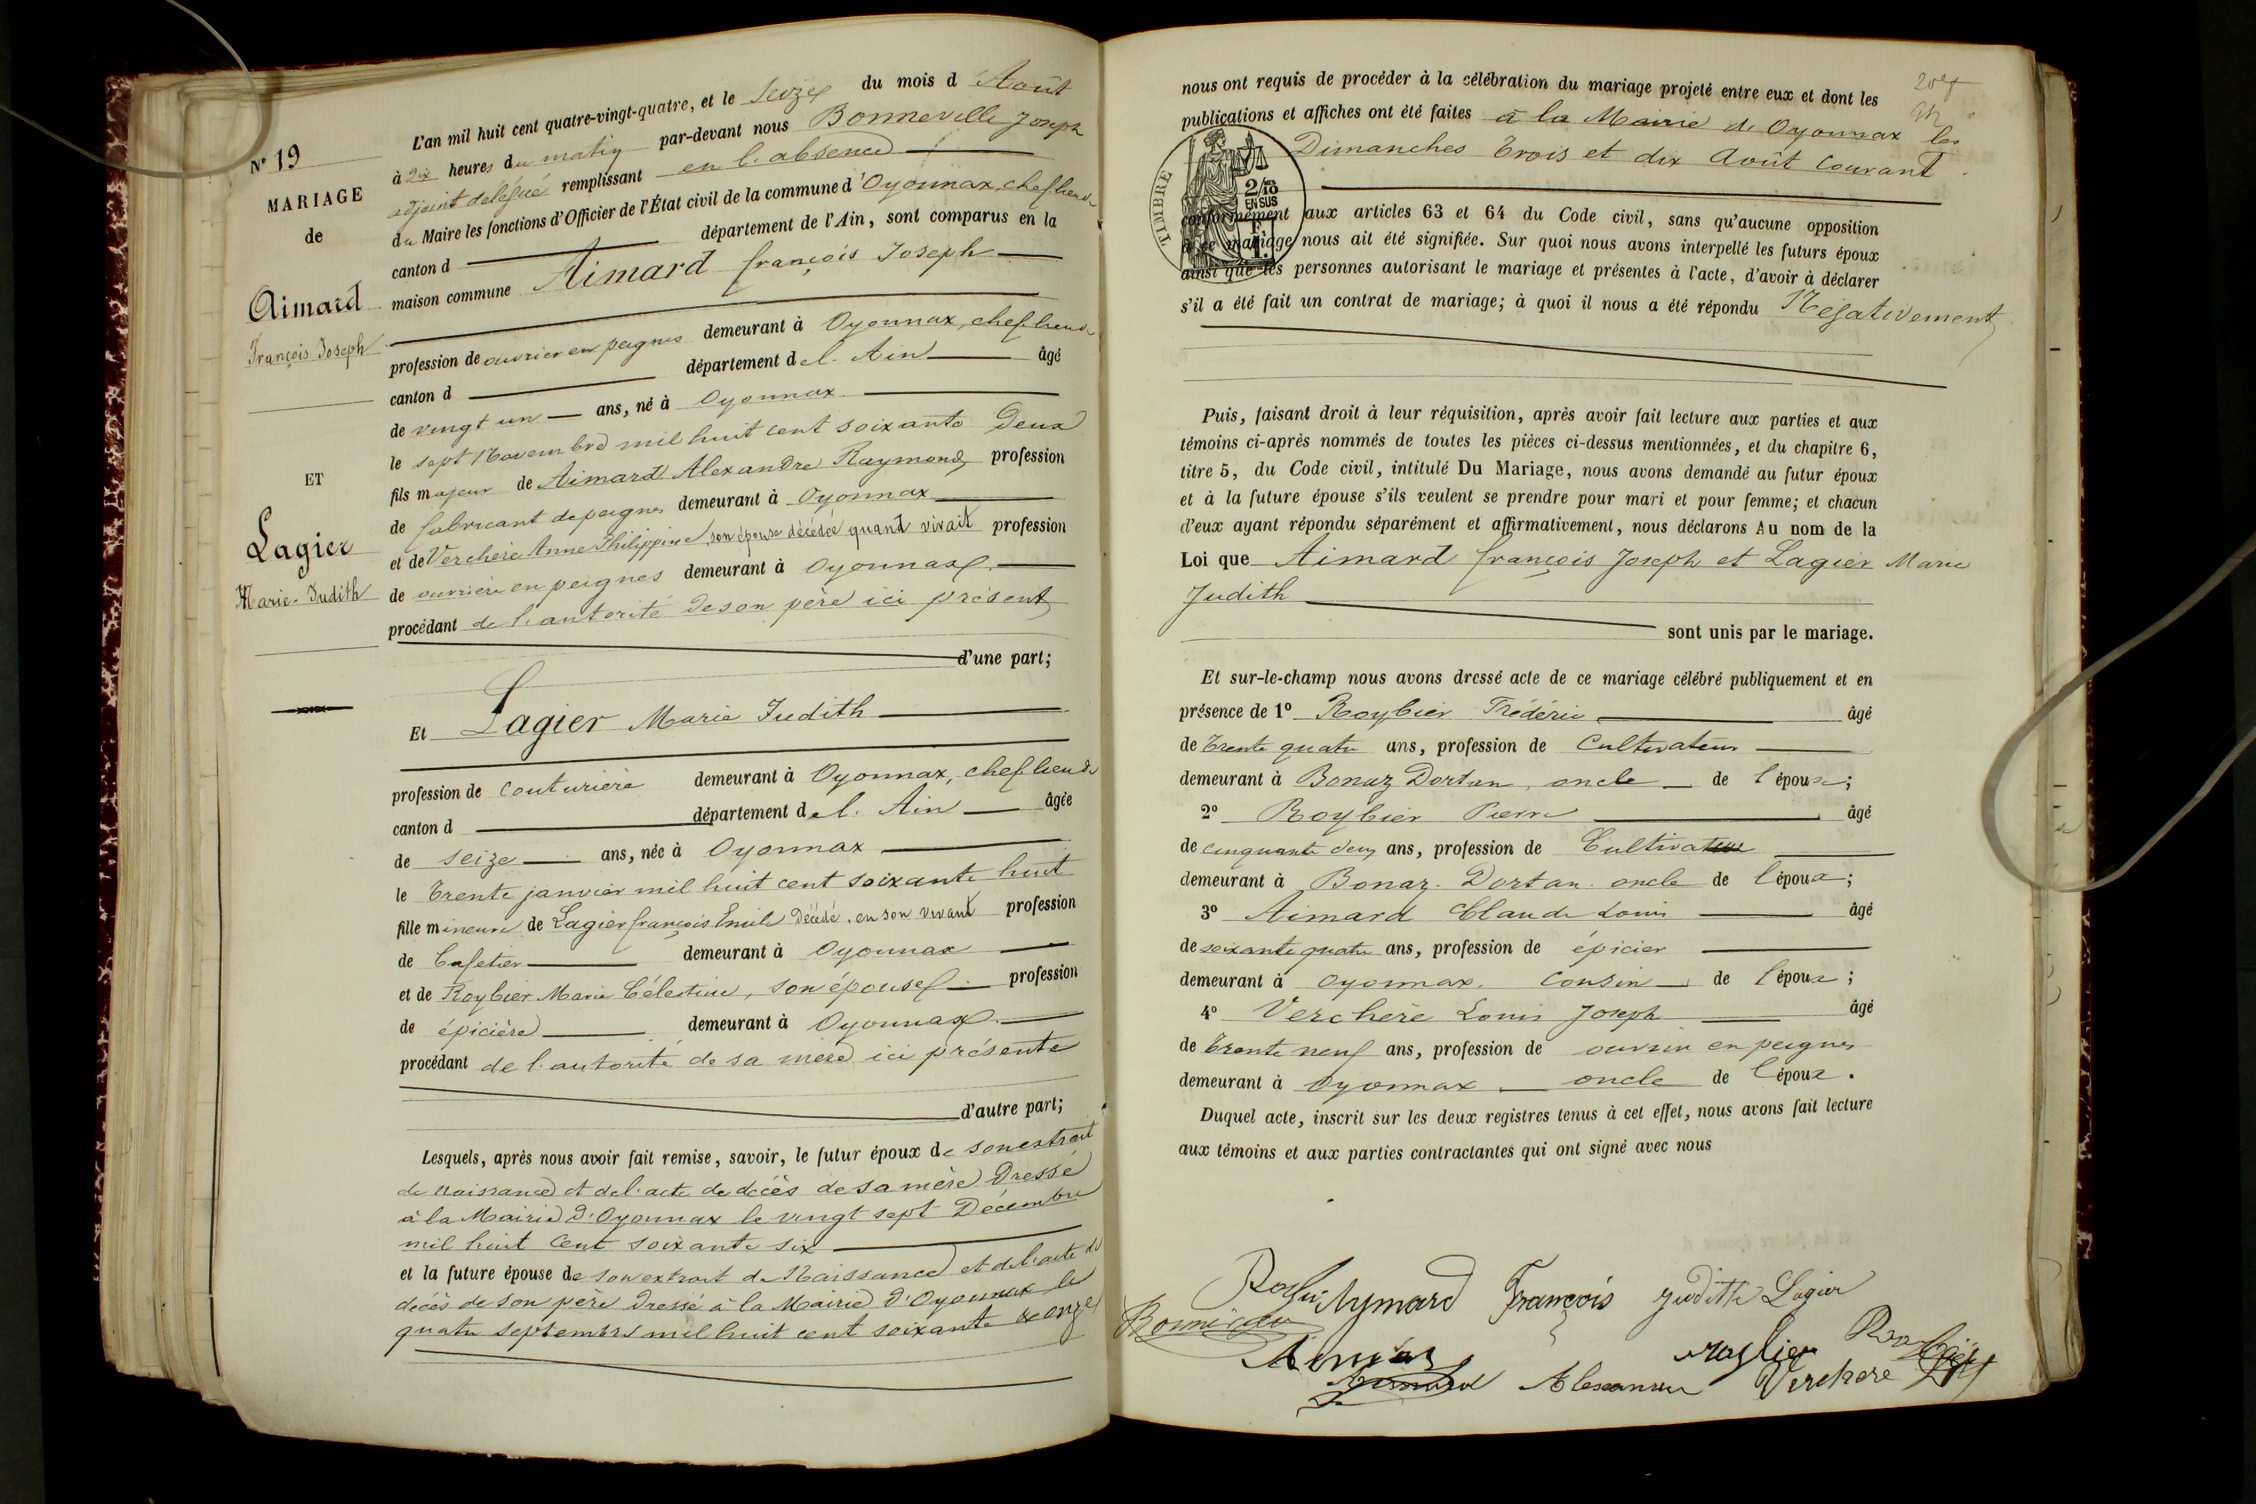 N° 19
MARIAGE
de
Aimard
François Joseph
ET
Lagier
Marie-Judith
L'an mil huit cent quatre-vingt-quatre, et le Seize du mois d'Août
à Dix heures du matin par-devant nous Bonneville Joseph
adjoint délégué remplissant en l'absence
du Maire les fonctions d'Officier de l'État civil de la commune d'Oyonnax, chef lieu de
canton d département de l'Ain, sont comparus en la
maison commune Aimard françois Joseph
profession de ouvrier en peignes demeurant à Oyonnax, chef lieu de
canton d département de l'Ain âgé
de vingt un ans, né à Oyonnax
le sept Novembre mil huit cent soixante Deux
fils majeur de Aimard Alexandre Raymond, profession
de fabricant de peignes demeurant à Oyonnax
et de Verchère Anne Philippine, son épouse décédée quand vivait profession
de ouvrière en peignes demeurant à Oyonnax
procédant de l'autorité de son père ici présent
d'une part;
Et Lagier Marie Judith
profession de couturière demeurant à Oyonnax, chef lieu de
canton d département de l'Ain âgée
de seize ans, née à Oyonnax
le Trente janvier mil huit cent soixante huit
fille mineure de Lagier françois Emile Décédé, en son vivant profession
de Cafetier demeurant à Oyonnax
et de Roybier Marie Célestine, son épouse profession
de épicière demeurant à Oyonnax
procédant de l'autorité de sa mère ici présente
d'autre part;
Lesquels, après nous avoir fait remise, savoir, le futur époux de son extrait
de naissance et de l'acte de décès de sa mère Dressé
à la Mairie d'Oyonnax le vingt sept Décembre
mil huit cent soixante six
et la future épouse de son extrait de Naissance et de l'acte de
décès de son père Dressé à la Mairie d'Oyonnax le
quatre septembre mil huit cent soixante & onze
nous ont requis de procéder à la célébration du mariage projeté entre eux et dont les
publications et affiches ont été faites à la Mairie d'Oyonnax les
Dimanches Trois et dix Août Courant
TIMBRE
2/10
EN SUS
F.
1.
conformément aux articles 63 et 64 du Code civil, sans qu'aucune opposition
à ce mariage nous ait été signifiée. Sur quoi nous avons interpellé les futurs époux
ainsi que les personnes autorisant le mariage et présentes à l'acte, d'avoir à déclarer
s'il a été fait un contrat de mariage; à quoi il nous a été répondu Négativement
Puis, faisant droit à leur réquisition, après avoir fait lecture aux parties et aux
témoins ci-après nommés de toutes les pièces ci-dessus mentionnées, et du chapitre 6,
titre 5, du Code civil, intitulé Du Mariage, nous avons demandé au futur époux
et à la future épouse s'ils veulent se prendre pour mari et pour femme; et chacun
d'eux ayant répondu séparément et affirmativement, nous déclarons Au nom de la
Loi que Aimard françois Joseph et Lagier Marie
Judith
sont unis par le mariage.
Et sur-le-champ nous avons dressé acte de ce mariage célébré publiquement et en
présence de 1° Roybier Frédéric âgé
de Trente quatre ans, profession de Cultivateur
demeurant à Bonaz Dortan, oncle de l'épouse;
2° Roybier Pierre âgé
de cinquante deux ans, profession de Cultivateur
demeurant à Bonaz. Dortan. oncle de l'épouse;
3° Aimard Claude Louis âgé
de soixante quatre ans, profession de épicier
demeurant à Oyonnax. Cousin de l'époux;
4° Verchère Louis Joseph âgé
de Trente neuf ans, profession de ouvrier en peignes
demeurant à Oyonnax oncle de l'époux.
Duquel acte, inscrit sur les deux registres tenus à cet effet, nous avons fait lecture
aux témoins et aux parties contractantes qui ont signé avec nous
Aymard François Judith Lagier
Aimard Alexandre Verchere